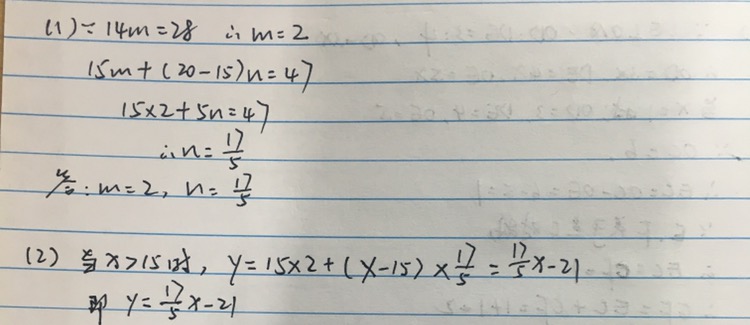 (1) ∵ 14m=28 ∴ m=2
15m+(20-15)n=47
15×2+5n=47
∴ n=17/5
答: m=2, n=17/5
(2) 当x>15时, y=15×2+(x-15)×17/5=17/5x-21
即 y=17/5x-21